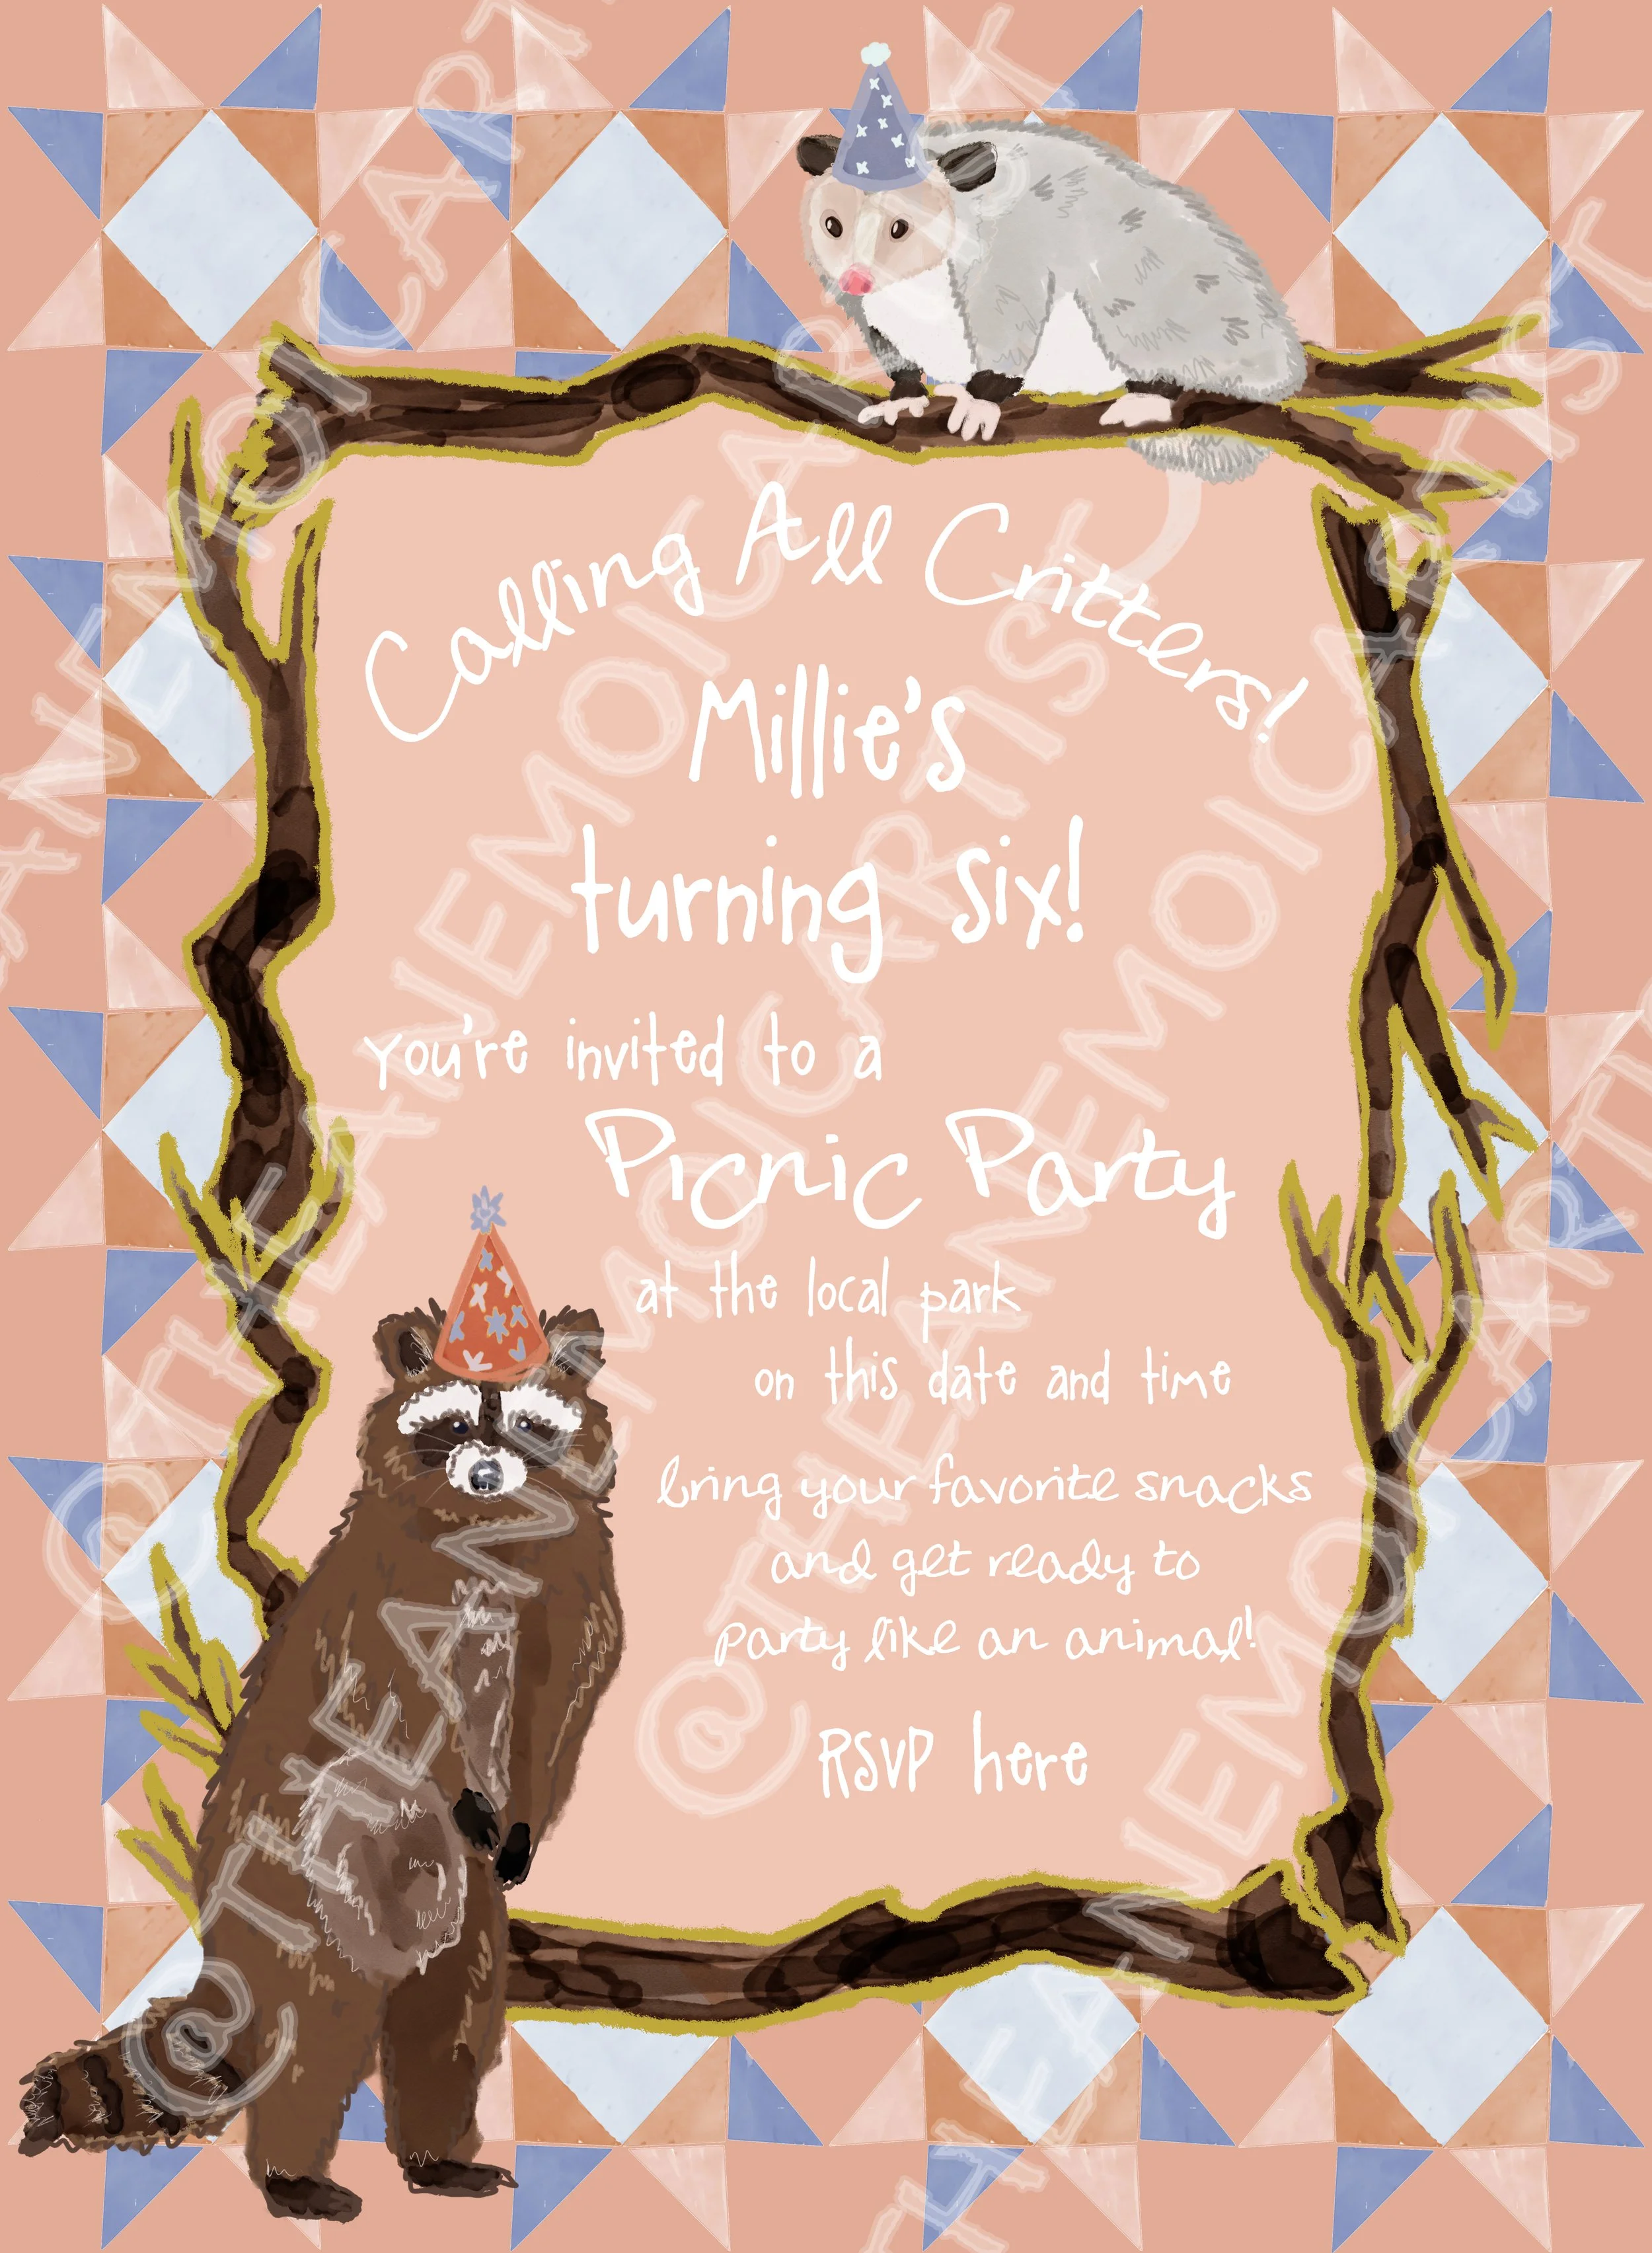 Calling All Critters!
Millie's
turning six!
you're invited to a
Picnic Party
at the local park
on this date and time
bring your favorite snacks
and get ready to
party like an animal!
RSVP here
@THEANEMOICARTIST
@THEANEMOICARTIST
@THEANEMOICARTIST
@THEANEMOICARTIST